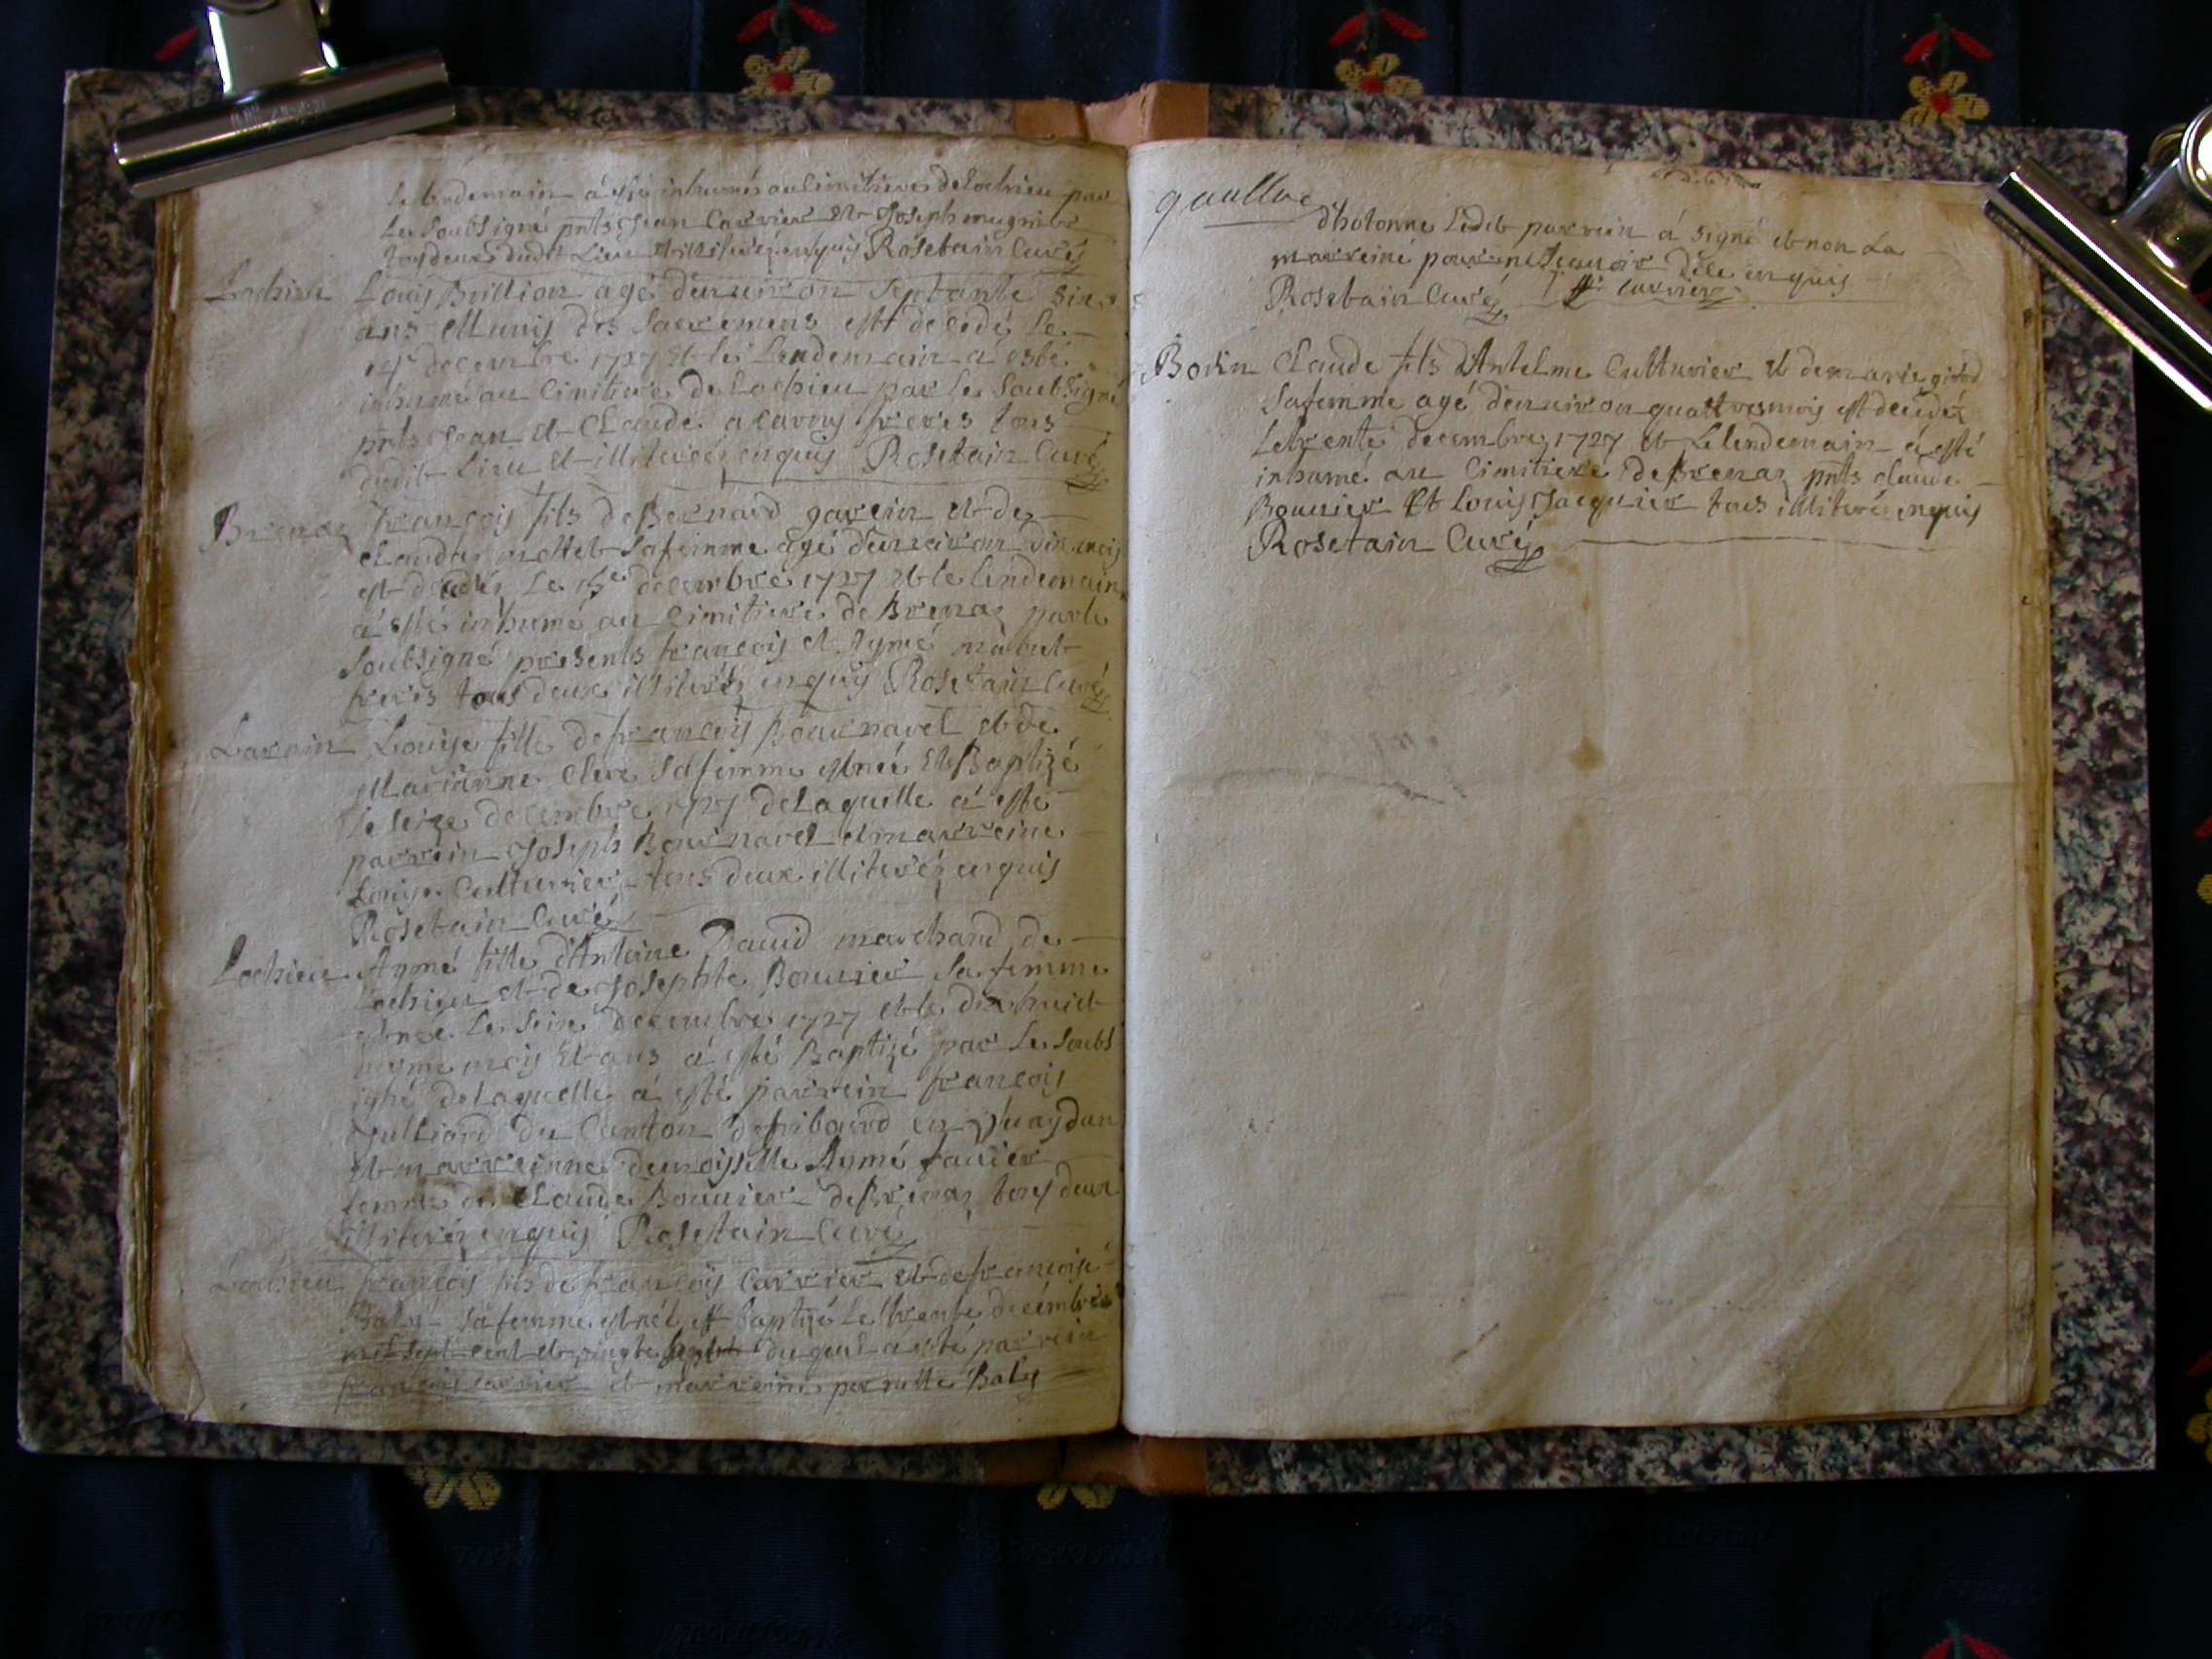 le lendemain à esté inhumé au cimitiere de Lochieu par
Le soubsigné pnts Jean Carrier et Joseph mugnier
tous deux dudit Lieu et illiterez enquis Rosetain Curé
Lochieu Louis Brillion agé denuiron septante six
ans Munis des sacremens est decedé le
decembre 1727 et le Lendemain à esté
inhumé au Cimitiere de Lochieu par le soubsigné
pnts Jean et Claude frères tous
dudit Lieu et illiterez enquis Rosetain Curé
Brenaz françois fils de Bernard garein et de
Clauda mollet sa femme agé denuiron dix mois
est decedez Le decembre 1727 et le lendemain
à esté inhumé au Cimitiere de Brenaz par le
soubsigné presents françois et Aymé
freres tous deux illiterez enquis Rosetain Curé
Lavoin Louise fille de françois Bournavel et de
Marianne Clerc sa femme est née Et Baptizé
Le seize decembre 1727 de Laquelle à esté
parrein Joseph Bournavel et marreine
Louise Culturier tous deux illiterez enquis
Rosetain Curé
Lochieu Aymé fille d'Antoine Dauid marchand de
Lochieu et de Josephte Bouuier sa femme
est née Le seize decembre 1727 et le dixhuict
mesme mois Et ans à esté Baptizé par le soubs
igné de Laquelle à esté parrein françois
Julliard du Canton de fribourd en
et marreinne demoisselle Aymé fauier
femme de Claude Bouuier de Brenaz tous deux
illiterez enquis Rosetain Curé
Lochieu françois fils de françois Carrier et de françoise
Baly sa femme est nél et baptizé le trente decembre
mil sept cent et vingte sept du quel à esté parrein
françois carrier et marreine pernette Baly
d'hotonne Ledit parrein à signé et non La
marreine pour ne scauoir dele enquis
Rosetain Curé f carrier
Bodin Claude fils d'Antelme Cultuvier et de marie girod
sa femme agé denuiron quattres mois est decedéz
Le trente decembre 1727 et Le lendemain à esté
inhumé au Cimitiere de Brenaz pnts claude
Bouuier Et Louis Jacquier tous illiterez enquis
Rosetain Curé